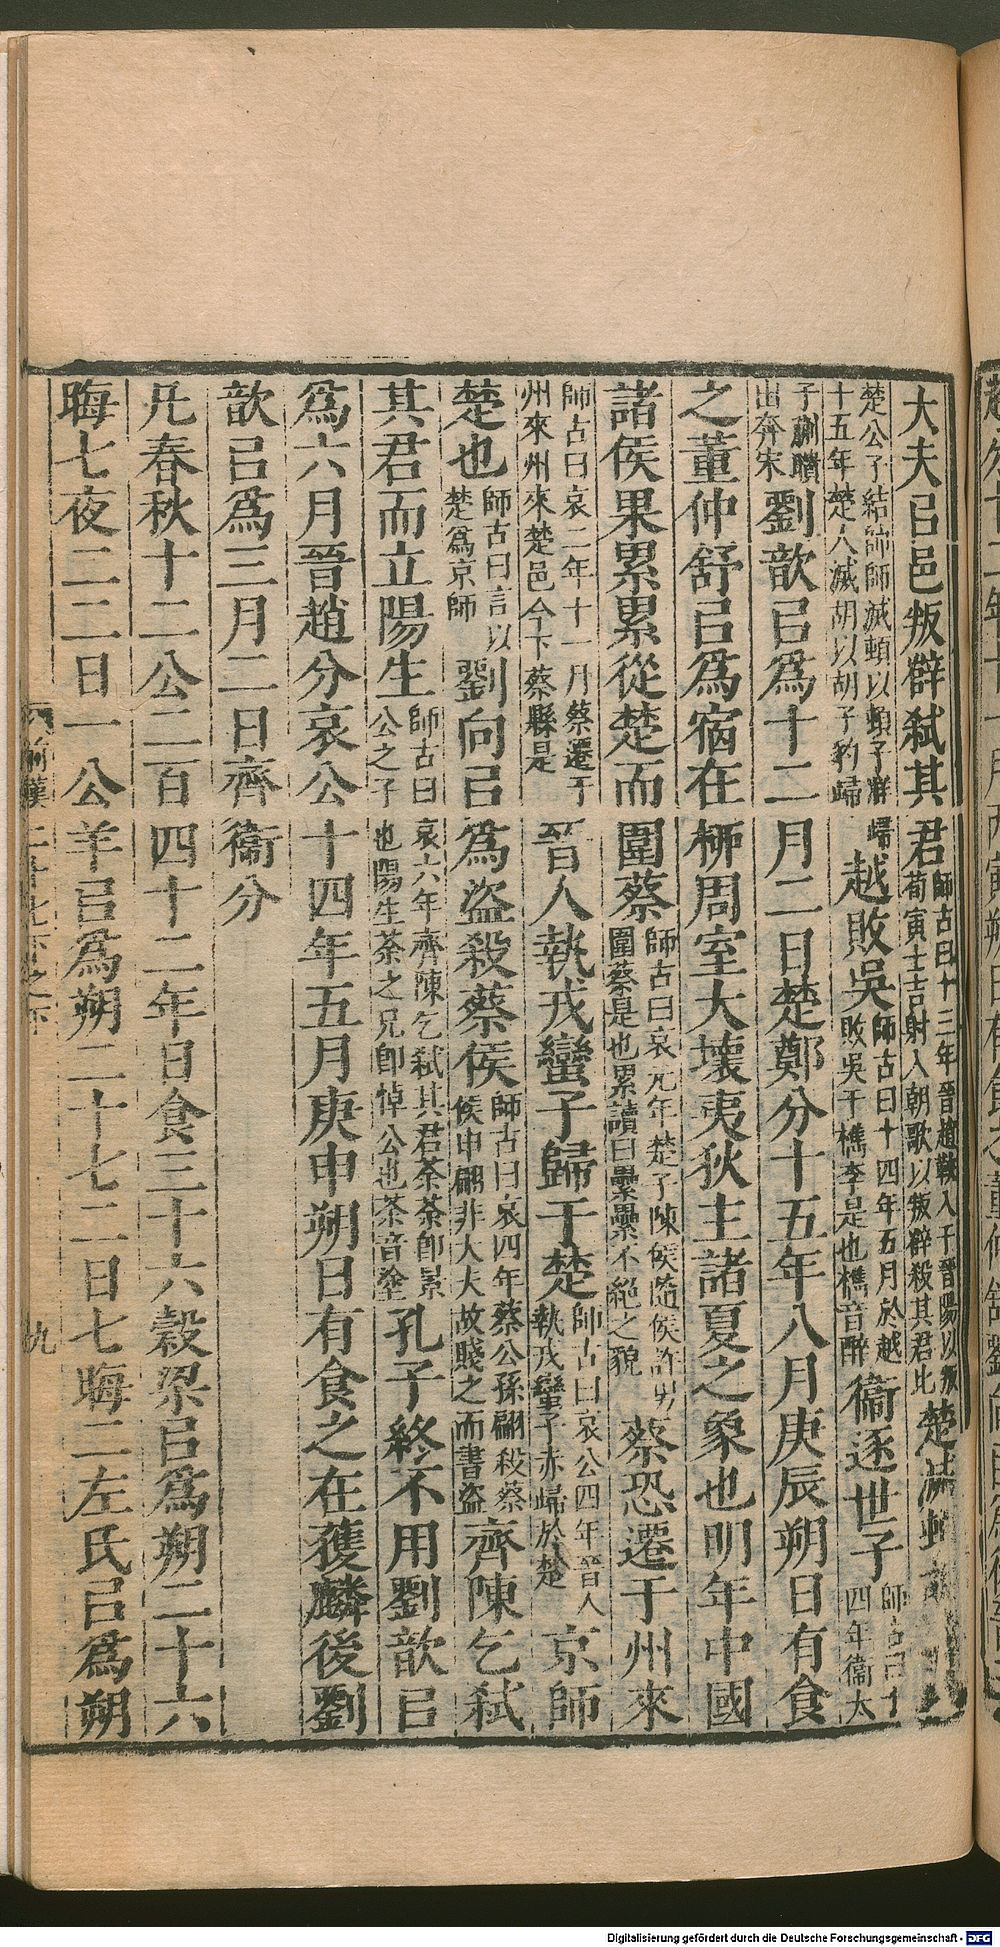 大夫㠯邑叛辟弑其君師古曰十三年晉趙鞅入于晉陽以叛荀寅士吉射入朝歌以叛辟殺其君比楚滅頓
楚公子結帥師滅頓以頓子牂歸十五年楚人滅胡以胡子豹歸越敗吳師古曰十四年五月於越敗吳于檇李是也檇音醉衞逐世子師古曰十四年衞太
子蒯聵出奔宋劉歆㠯爲十二月二日楚鄭分十五年八月庚辰朔日有食
之董仲舒㠯爲宿在桺周室大壞夷狄主諸夏之象也明年中國
諸侯果累累從楚而圍蔡師古曰哀元年楚子陳侯隨侯許男圍蔡是也累讀曰纍纍不絕之貌蔡恐遷于州來
師古曰哀二年十一月蔡遷于州來州來楚邑今下蔡縣是晉人執戎蠻子歸于楚師古曰哀公四年晉人執戎蠻子赤歸於楚京師
楚也師古曰言以楚爲京師劉向㠯爲盜殺蔡侯師古曰哀四年蔡公孫翩殺蔡侯申翩非大夫故賤之而書盜齊陳乞弑
其君而立陽生師古曰哀六年齊陳乞弑其君荼荼卽景公之子也陽生荼之兄卽悼公也荼音塗孔子終不用劉歆㠯
爲六月晉趙分哀公十四年五月庚申朔日有食之在獲麟後劉
歆㠯爲三月二日齊衞分
凡春秋十二公二百四十二年日食三十六穀梁㠯爲朔二十六
晦七夜二二日一公羊㠯爲朔二十七二日七晦二左氏㠯爲朔
前漢二十七下之下
九
Digitalisierung gefördert durch die Deutsche Forschungsgemeinschaft - DFG